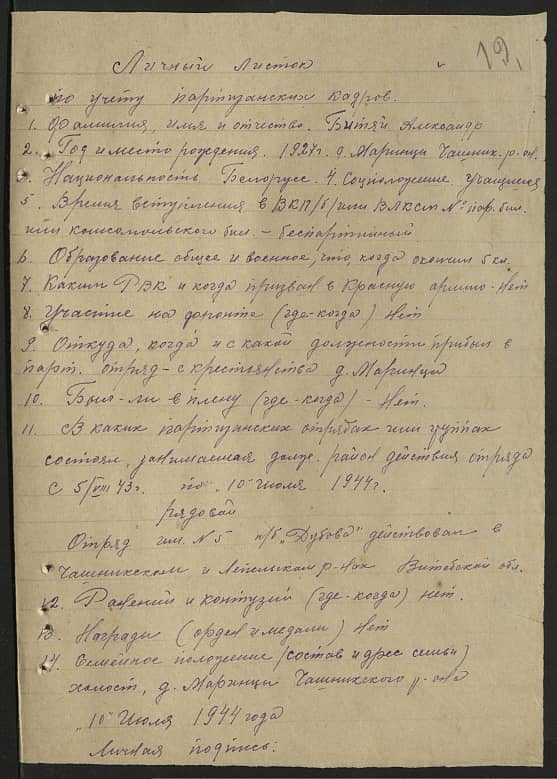 19.
Личный листок
по учету партизанских кадров.
1. Фамилия, имя и отчество. Битяй Александр
2. Год и место рождения. 1927г. д. Маринцы Чашник. р-он.
3. Национальность Белорус. 4. Соцположение учащийся
5. Время вступления в ВКП/б/ или ВЛКСМ № пар. бил.
или комсомольского бил. - беспартийный
6. Образование общее и военное, что когда окончил 5 кл.
7. Каким РВК и когда призван в Красную армию - Нет
8. Участие на фронте (где-когда) Нет
9. Откуда, когда и с какой должности прибыл в
парт. отряд - с крестьянства д. Маринцы
10. Был-ли в плену (где-когда) - Нет.
11. В каких партизанских отрядах или группах
состоял, занимаемая долж. район действия отряда
с 5/VIII 43г. по „10" июля 1944г.
рядовой
Отряд им. № 5 п/б „Дубова" действовал в
Чашникском и Лепельском р-нах Витебской обл.
12. Ранений и контузий (где-когда) нет.
13. Награды (ордена и медали) Нет
14. Семейное положение (состав и адрес семьи)
холост, д. Маринцы Чашникского р-она
„10" Июля 1944 года
Личная подпись.